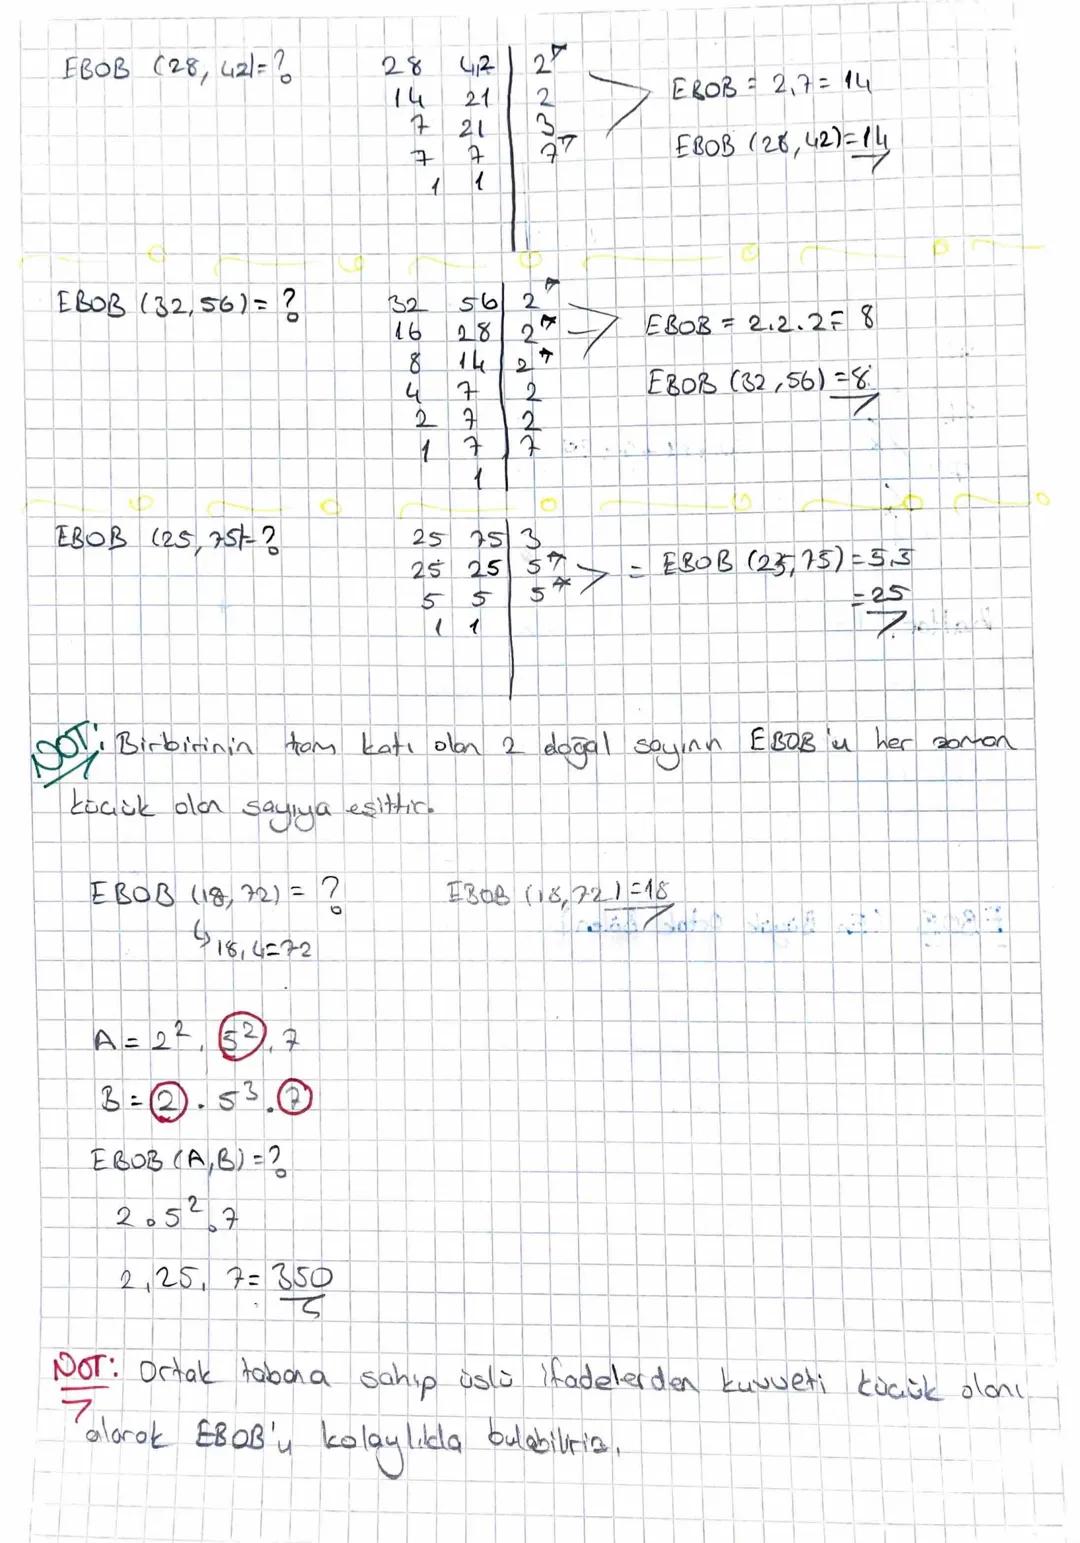 EBOB (28, 42)= ?
28 42 | 2
14 21 | 2
7 21 | 3
7 7 | 7
1 1
EBOB = 2.7 = 14
EBOB (28, 42)=14
EBOB (32, 56) = ?
32 56 | 2
16 28 | 2
8 14 | 2
4 7 | 2
2 7 | 2
1 7 | 7
1
EBOB = 2.2.2 = 8
EBOB (32, 56) = 8
EBOB (25, 75)= ?
25 75 | 3
25 25 | 5
5 5 | 5
1 1
= EBOB (25, 75) = 5.5
= 25
NOT: Birbirinin tam katı olan 2 doğal sayının EBOB'u her zaman
küçük olan sayıya eşittir.
EBOB (18, 72) = ?
18.4=72
EBOB (18, 72) =18
A = 2². 5². 7
B = 2 . 5³. 7
EBOB (A,B) = ?
2.5².7
2.25. 7= 350
NOT: Ortak tabana sahip üslü ifadelerden kuvveti küçük olanı
alarak EBOB'u kolaylıkla bulabiliriz.